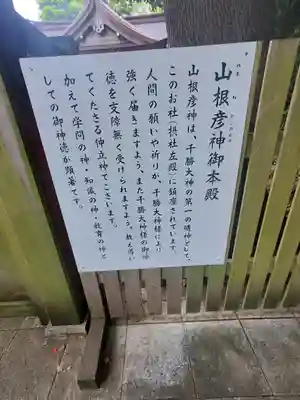 山根彦神御本殿
やまねひこのかみ
山根彦神は、千勝大神の第一の晴神として、
このお社(摂社左殿)に鎮座されています。
人間の願いや祈りが、千勝大神様により
強く届きますよう、また千勝大神様の御神
徳を支障無く受けられますよう、教え導い
てくださる仲立神でございます。
加えて学問の神・知識の神・教育の神と
しての御神徳が顕著です。